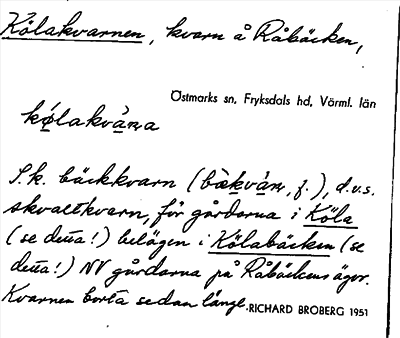 Kölakvarnen, kvarn å Råbäcken,
Östmarks sn, Fryksdals hd, Värml. län
kǿlakvàṇa
S.k. bäckkvarn (bækvàṇ, f.), d.v.s.
skvaltkvarn, för gårdarna i Köla
(se detta!) belägen i Kölabäcken (se
detta!) NV gårdarna på Råbäckens ägor.
Kvarnen borta sedan länge.
RICHARD BROBERG 1951